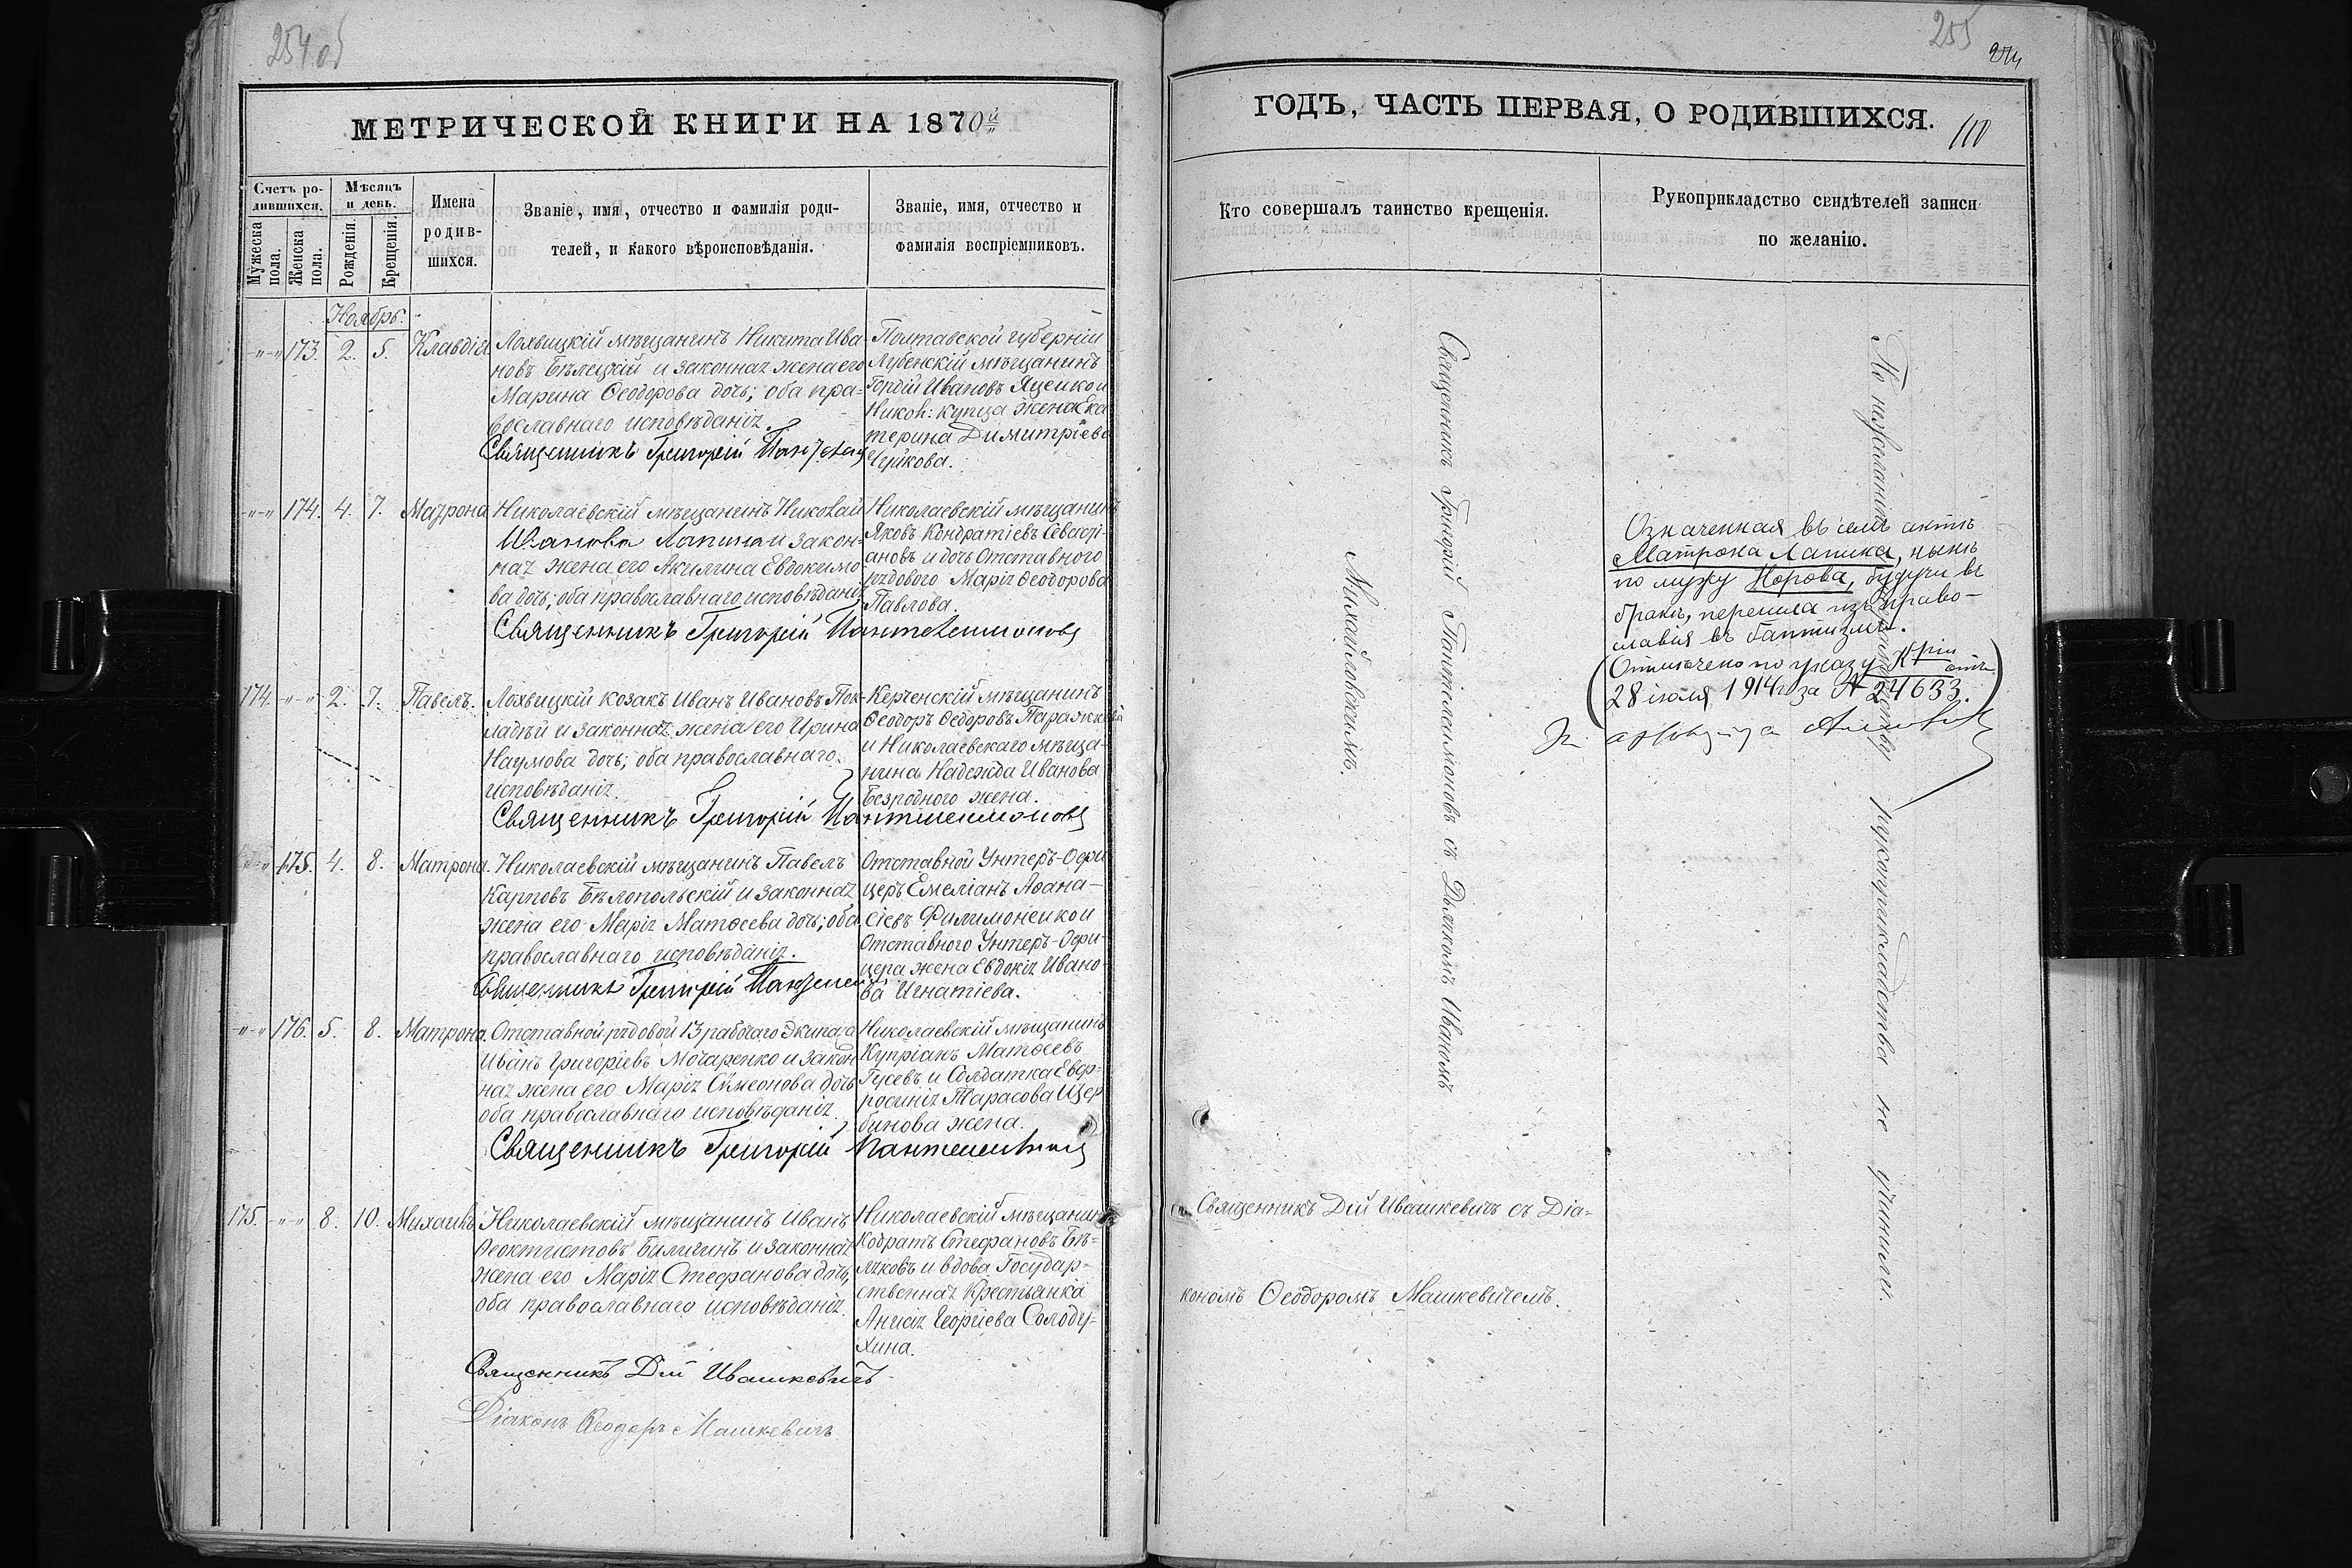 254 об
МЕТРИЧЕСКОЙ КНИГИ НА 1870й
Счетъ ро-
дившихся.
Мужеска пола.
Женска пола.
Мѣсяцъ
и день.
Рожденія
Крещенія
Имена
родив-
шихся.
Званіе, имя, отчество и фамилія роди-
телей, и какого вѣроисповѣданія.
Званіе, имя, отчество и
фамилія воспріемниковъ.
Ноябрь.
-"-" 173. 2. 5. Клавдія
Лохвицкій мѣщанинъ Никита Ива-
новъ Бѣлецкій и законная жена его
Марина Ѳеодорова дочь; оба пра-
вославнаго исповѣданія.
Священникъ Григорій
Полтавской губерніи
Лубенскій мѣщанинъ
Гордій Ивановъ Яценко и
Никол: купца жена Ека
терина Димитріева
Чуйкова.
-"-" 174. 4. 7. Матрона
Николаевскій мѣщанинъ Николай
Иванова Лапина и закон-
ная жена его Акилина Евдокимо
ва дочь; оба православнаго исповѣданія
Священникъ Григорій Пантелеимоновъ
Николаевскій мѣщанинъ
Яковъ Кондратіевъ Севасті-
ановъ и дочь Отставного
рядового Марія Ѳеодорова
Павлова.
174. -"-" 2. 7. Павелъ.
Лохвицкій козакъ Иванъ Ивановъ Пок-
ладъй и законная жена его Ирина
Наумова дочь; оба православнаго
исповѣданія.
Священникъ Григорій Пантелеимоновъ
Керченскій мѣщанинъ
Ѳеодоръ Ѳедоровъ
и Николаевскаго мѣща-
нина Надежда Иванова
Безродного жена.
-"-" 175. 4. 8. Матрона.
Николаевскій мѣщанинъ Павелъ
Карповъ Бѣлопольскій и законная
жена его Марія Матѳеева дочь; оба
православнаго исповѣданія.
Священникъ Григорій
Отставной Унтеръ-Офи
церъ Емеліанъ Аѳана-
сіевъ Филимоненко и
Отставного Унтеръ-Офи-
цера жена Евдокія Ивано-
ва Игнатіева.
-"-" 176. 5. 8. Матрона.
Отставной рядовой 13 рабочаго Экипажа
Иванъ Григоріевъ Мочаренко и закон
ная жена его Марія Сѵмеонова дочь
оба православнаго исповѣданія
Священникъ Григорій Пантелеимоновъ
Николаевскій мѣщанинъ
Купріанъ Матѳеевъ
Гусевъ и Солдатка Евфр-
росинія Тарасова Щер
бинова жена.
175. -"-" 8. 10. Михаилъ
Николаевскій мѣщанинъ Иванъ
Ѳеоктистовъ и законная
жена его Марія Стефанова дочь,
оба православнаго исповѣданія.
Священникъ Дій Ивашкевичъ
Діаконъ Ѳеодоръ Машкевичъ
Николаевскій мѣщанинъ
Кодратъ Стефановъ Бѣ-
ляковъ и вдова Государ-
ственная Крестьянка
Анисія Георгіева Солоду-
хина.
255
ГОДЪ, ЧАСТЬ ПЕРВАЯ, О РОДИВШИХСЯ.
110
Кто совершалъ таинство крещенія.
Рукоприкладство свидѣтелей записи
по желанію.
Священникъ Григорій Пантелеимоновъ съ Дьякомъ Иваномъ
Михайловскимъ.
Означенная въ семъ актѣ
Матрона Лапика, нынѣ
по мужу Норова, будучи въ
бракѣ, перешла изъ право-
славія въ баптизмъ.
(Отмѣчено по указу Крiи отъ
28 іюля 1914 г за № 24633.)
По нежеланію рукоприкладства не учинили.
Священникъ Дій Ивашкевичъ съ Діа-
кономъ Ѳеодоромъ Машкевичемъ.